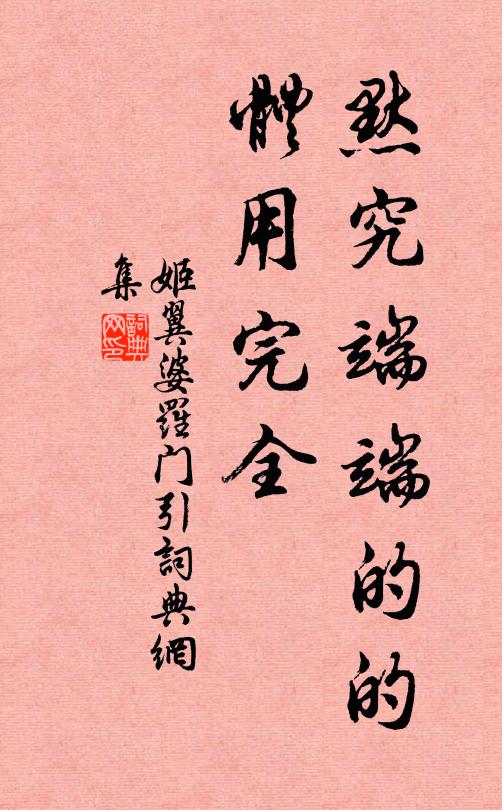 默究端端的的
體用完全
姬翼婆羅门引詞典網
集
詞典
网印